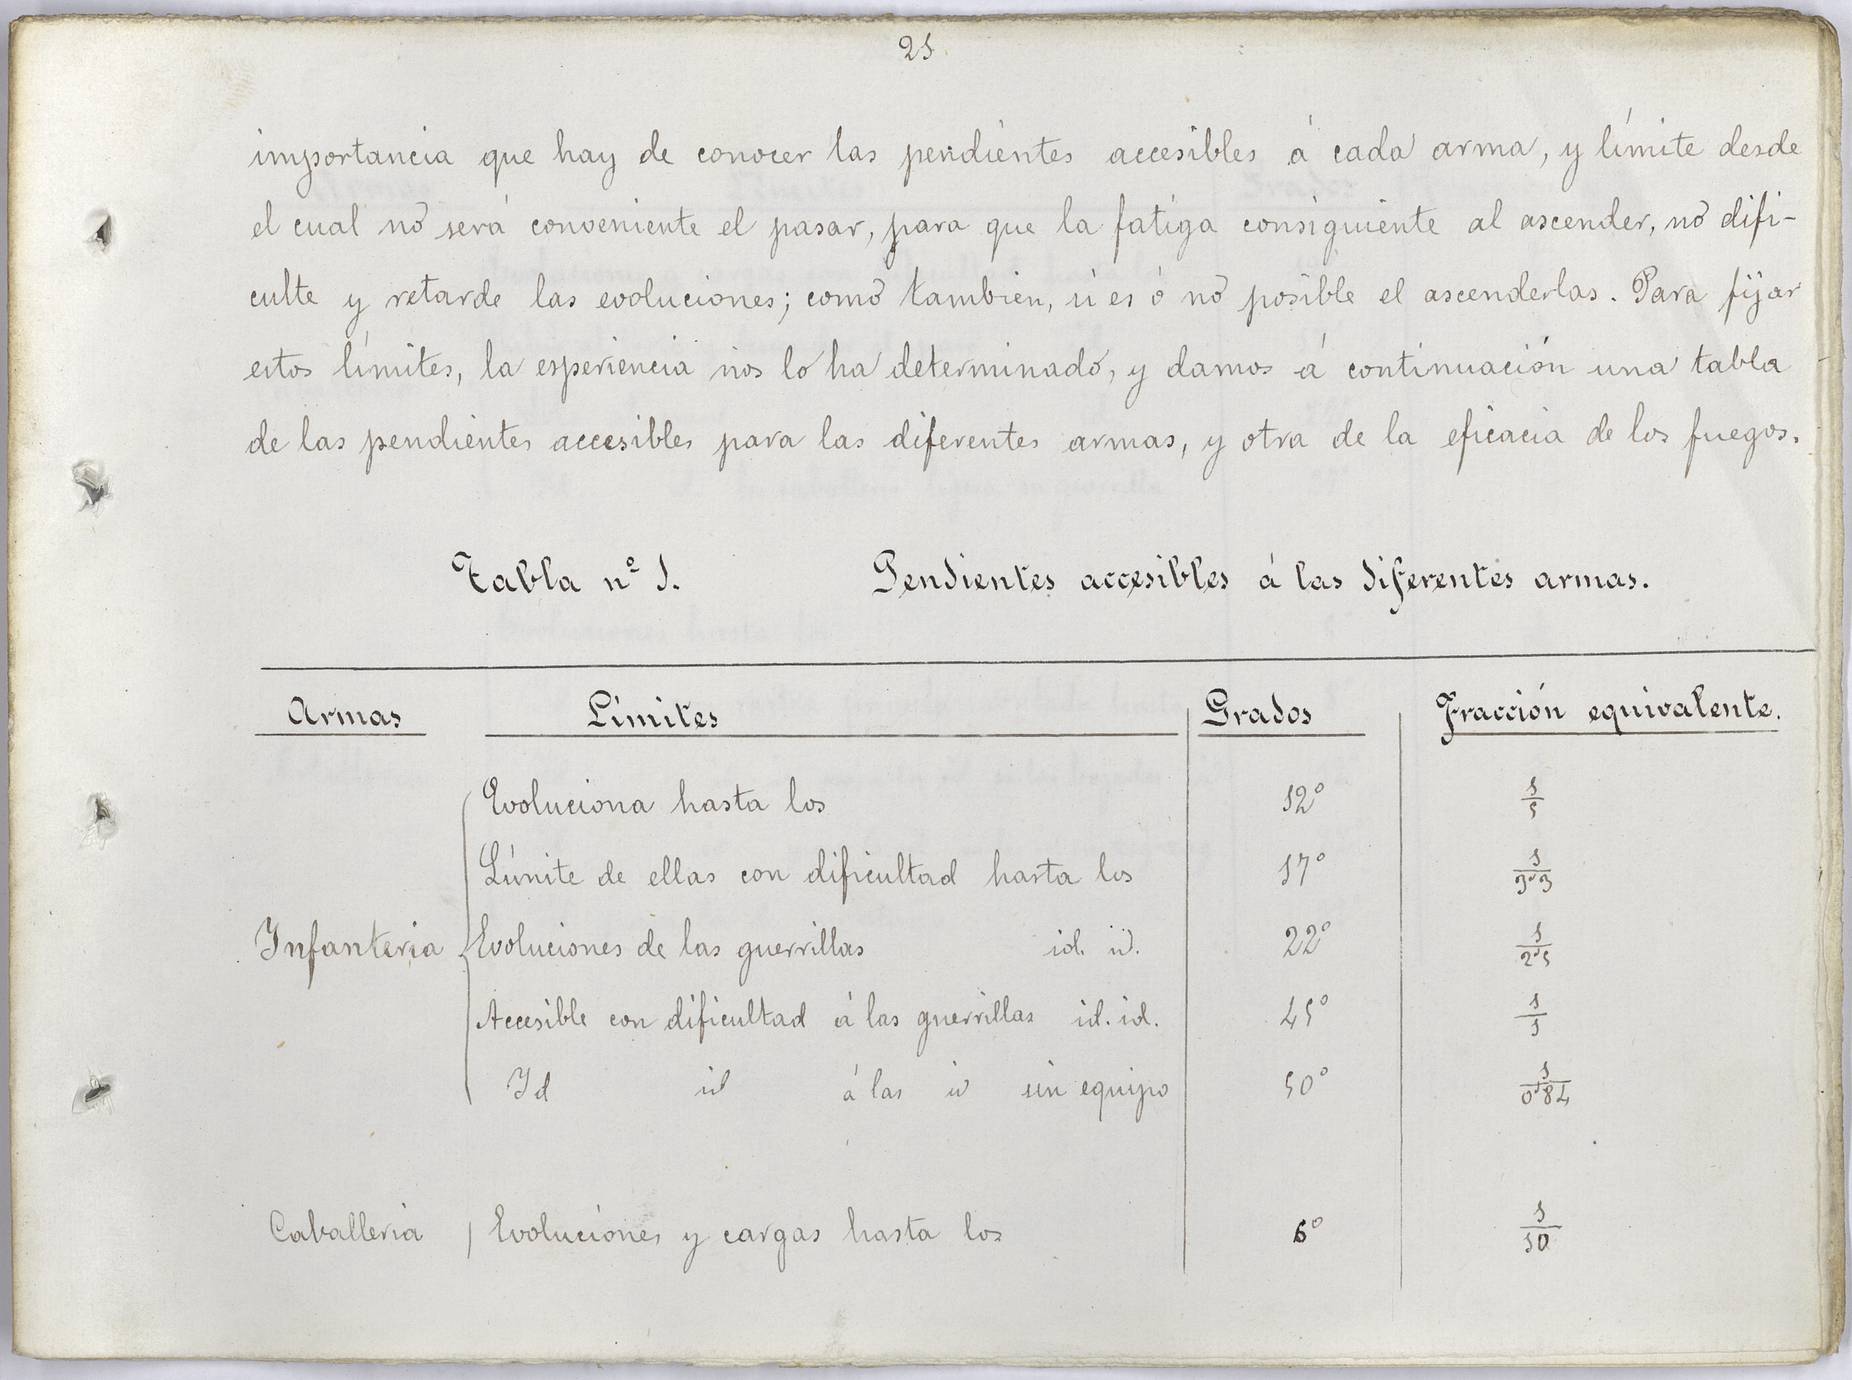 21
importancia que hay de conocer las pendientes accesibles á cada arma, y límite desde
el cual no será conveniente el pasar, para que la fatiga consiguiente al ascender, no difi-
culte y retarde las evoluciones; como tambien, si es ó no posible el ascenderlas. Para fijar
estos límites, la esperiencia nos lo ha determinado, y damos á continuación una tabla
de las pendientes accesibles para las diferentes armas, y otra de la eficacia de los fuegos.
Tabla nº 1. Pendientes accesibles á las diferentes armas.
Armas Límites Grados Fracción equivalente.
Evoluciona hasta los 12° 1/5
Límite de ellas con dificultad hasta los 17° 1/3'3
Infanteria Evoluciones de las guerrillas id. id. 22° 1/2'5
Accesible con dificultad á las guerrillas id. id. 45° 1/1
Id id á las id sin equipo 50° 1/0'84
Caballeria Evoluciones y cargas hasta los 6° 1/10